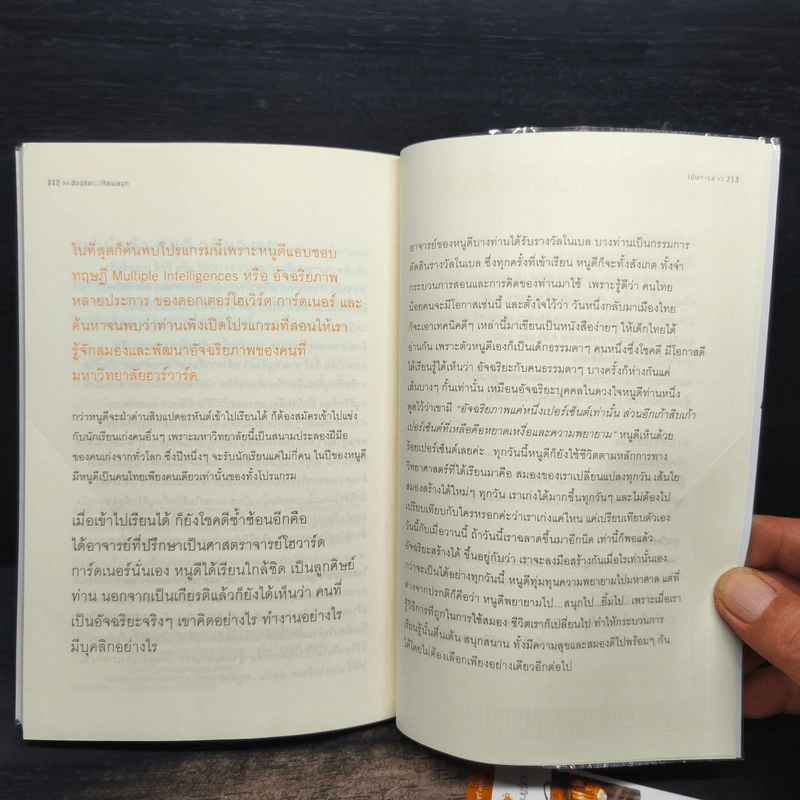 212 >> อัจฉริยะ...เรียนสนุก
ในที่สุดก็ค้นพบโปรแกรมนี้เพราะหนูดีแอบชอบ
ทฤษฎี Multiple Intelligences หรือ อัจฉริยภาพ
หลายประการ ของดอกเตอร์โฮเวิร์ด การ์ดเนอร์ และ
ค้นหาจนพบว่าท่านเพิ่งเปิดโปรแกรมที่สอนให้เรา
รู้จักสมองและพัฒนาอัจฉริยภาพของคนที่
มหาวิทยาลัยฮาร์วาร์ด
กว่าหนูดีจะฝ่าด่านสิบแปดอรหันต์เข้าไปเรียนได้ ก็ต้องสมัครเข้าไปแข่ง
กับนักเรียนเก่งคนอื่นๆ เพราะมหาวิทยาลัยนี้เป็นสนามประลองฝีมือ
ของคนเก่งจากทั่วโลก ซึ่งปีหนึ่งๆ จะรับนักเรียนแค่ไม่กี่คน ในปีของหนูดี
มีหนูดีเป็นคนไทยเพียงคนเดียวเท่านั้นของทั้งโปรแกรม
เมื่อเข้าไปเรียนได้ ก็ยังโชคดีซ้ำซ้อนอีกคือ
ได้อาจารย์ที่ปรึกษาเป็นศาสตราจารย์โฮวาร์ด
การ์ดเนอร์นั่นเอง หนูดีได้เรียนใกล้ชิด เป็นลูกศิษย์
ท่าน นอกจากเป็นเกียรติแล้วก็ยังได้เห็นว่า คนที่
เป็นอัจฉริยะจริงๆ เขาคิดอย่างไร ทำงานอย่างไร
มีบุคลิกอย่างไร
วนิษา เรซ >> 213
อาจารย์ของหนูดีบางท่านได้รับรางวัลโนเบล บางท่านเป็นกรรมการ
ตัดสินรางวัลโนเบล ซึ่งทุกครั้งที่เข้าเรียน หนูดีก็จะทั้งสังเกต ทั้งจำ
กระบวนการสอนและการคิดของท่านมาใช้ เพราะรู้ดีว่า คนไทย
น้อยคนจะมีโอกาสเช่นนี้ และตั้งใจไว้ว่า วันหนึ่งกลับมาเมืองไทย
ก็จะเอาเทคนิคดีๆ เหล่านี้มาเขียนเป็นหนังสือง่ายๆ ให้เด็กไทยได้
อ่านกัน เพราะตัวหนูดีเองก็เป็นเด็กธรรมดาๆ คนหนึ่งซึ่งโชคดี มีโอกาสดี
ได้เรียนรู้ได้เห็นว่า อัจฉริยะกับคนธรรมดาๆ บางครั้งก็ห่างกันแค่
เส้นบางๆ กั้นเท่านั้น เหมือนอัจฉริยะบุคคลในดวงใจหนูดีท่านหนึ่ง
พูดไว้ว่าเขามี "อัจฉริยภาพแค่หนึ่งเปอร์เซ็นต์เท่านั้น ส่วนอีกเก้าสิบเก้า
เปอร์เซ็นต์ที่เหลือคือหยาดเหงื่อและความพยายาม" หนูดีเห็นด้วย
ร้อยเปอร์เซ็นต์เลยค่ะ...ทุกวันนี้หนูดีก็ยังใช้ชีวิตตามหลักการทาง
วิทยาศาสตร์ที่ได้เรียนมาคือ สมองของเราเปลี่ยนแปลงทุกวัน เส้นใย
สมองสร้างได้ใหม่ๆ ทุกวัน เราเก่งได้มากขึ้นทุกวันๆ และไม่ต้องไป
เปรียบเทียบกับใครหรอกค่ะว่าเราเก่งแค่ไหน แค่เปรียบเทียบตัวเอง
วันนี้กับเมื่อวานนี้ ถ้าวันนี้เราฉลาดขึ้นมาอีกนิด เท่านี้ก็พอแล้ว...
อัจฉริยะสร้างได้ ขึ้นอยู่กับว่า เราจะลงมือสร้างกันเมื่อไรเท่านั้นเอง...
กว่าจะเป็นได้อย่างทุกวันนี้ หนูดีทุ่มทุนความพยายามไปมหาศาล แต่ที่
ต่างจากปรกติก็คือว่า หนูดีพยายามไป...สนุกไป...ยิ้มไป...เพราะเมื่อเรา
รู้วิธีการที่ถูกในการใช้สมอง ชีวิตเราก็เปลี่ยนไป ทำให้กระบวนการ
เรียนรู้นั้นตื่นเต้น สนุกสนาน ทั้งมีความสุขและสมองดีไปพร้อมๆ กัน
ได้โดยไม่ต้องเลือกเพียงอย่างเดียวอีกต่อไป